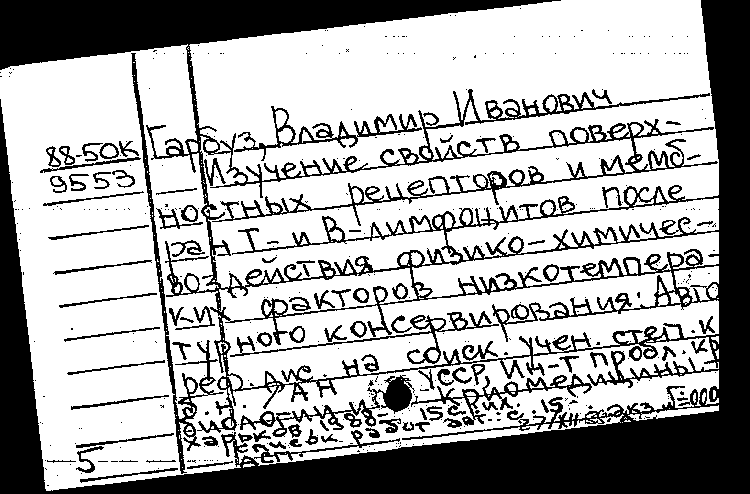 Гарбуз, Владимир Иванович
88-50К
9553
Изучение свойств поверх-
ностных рецепторов и мемб-
ран Т- и В-лимфоцитов после
воздействия физико-химичес-
ких факторов низкотемпера-
турного консервирования: Авто
реф. дис. на соиск. учен. степ. к
б. н. / АН УССР, Ин-т пробл. кр
биологии и криомедицины.-
Харьков, 1988.- 15 с. ил.
Список работ авт.: с. 15
27/XII
5